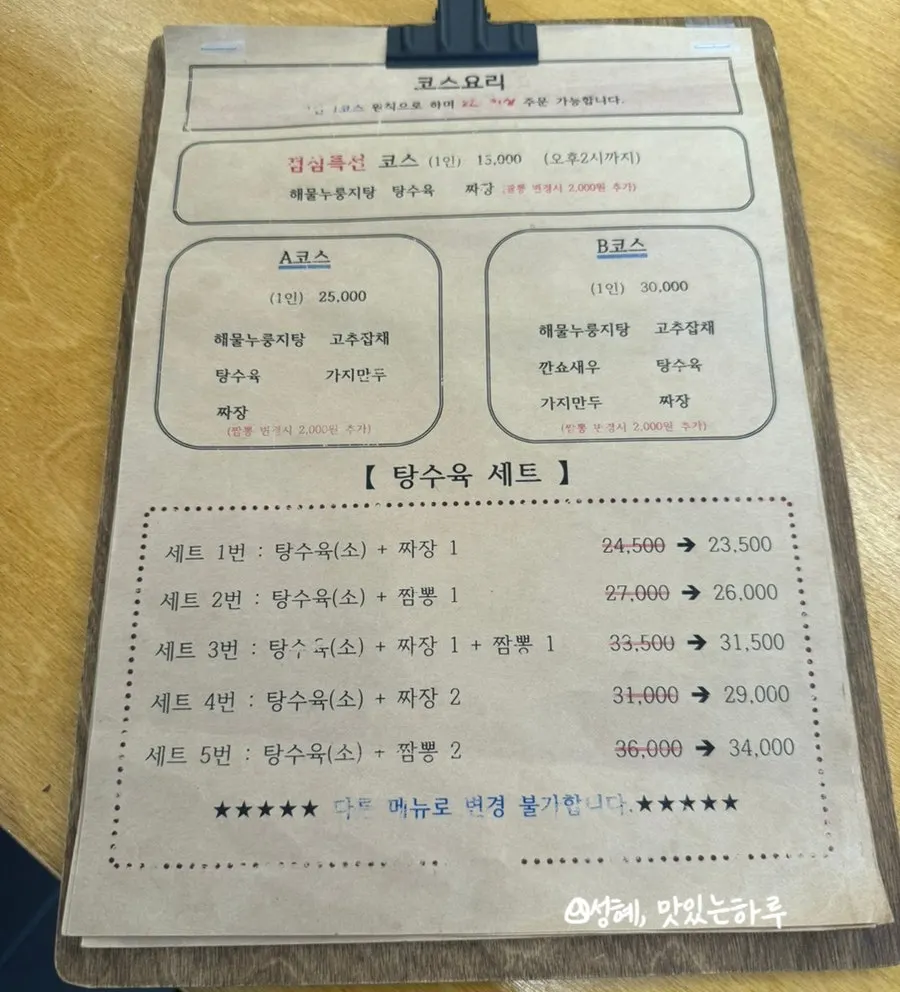 코스요리
1코스 원칙으로 하며 이상 주문 가능합니다.
점심특선 코스 (1인) 15,000 (오후2시까지)
해물누룽지탕 탕수육 짜장 (짬뽕 변경시 2,000원 추가)
A코스
(1인) 25,000
해물누룽지탕 고추잡채
탕수육 가지만두
짜장
(짬뽕 변경시 2,000원 추가)
B코스
(1인) 30,000
해물누룽지탕 고추잡채
깐쇼새우 탕수육
가지만두 짜장
(짬뽕 변경시 2,000원 추가)
【 탕수육 세트 】
세트 1번 : 탕수육(소) + 짜장 1 24,500 → 23,500
세트 2번 : 탕수육(소) + 짬뽕 1 27,000 → 26,000
세트 3번 : 탕수육(소) + 짜장 1 + 짬뽕 1 33,500 → 31,500
세트 4번 : 탕수육(소) + 짜장 2 31,000 → 29,000
세트 5번 : 탕수육(소) + 짬뽕 2 36,000 → 34,000
★★★★★ 다른 메뉴로 변경 불가합니다.★★★★★
성혜, 맛있는하루